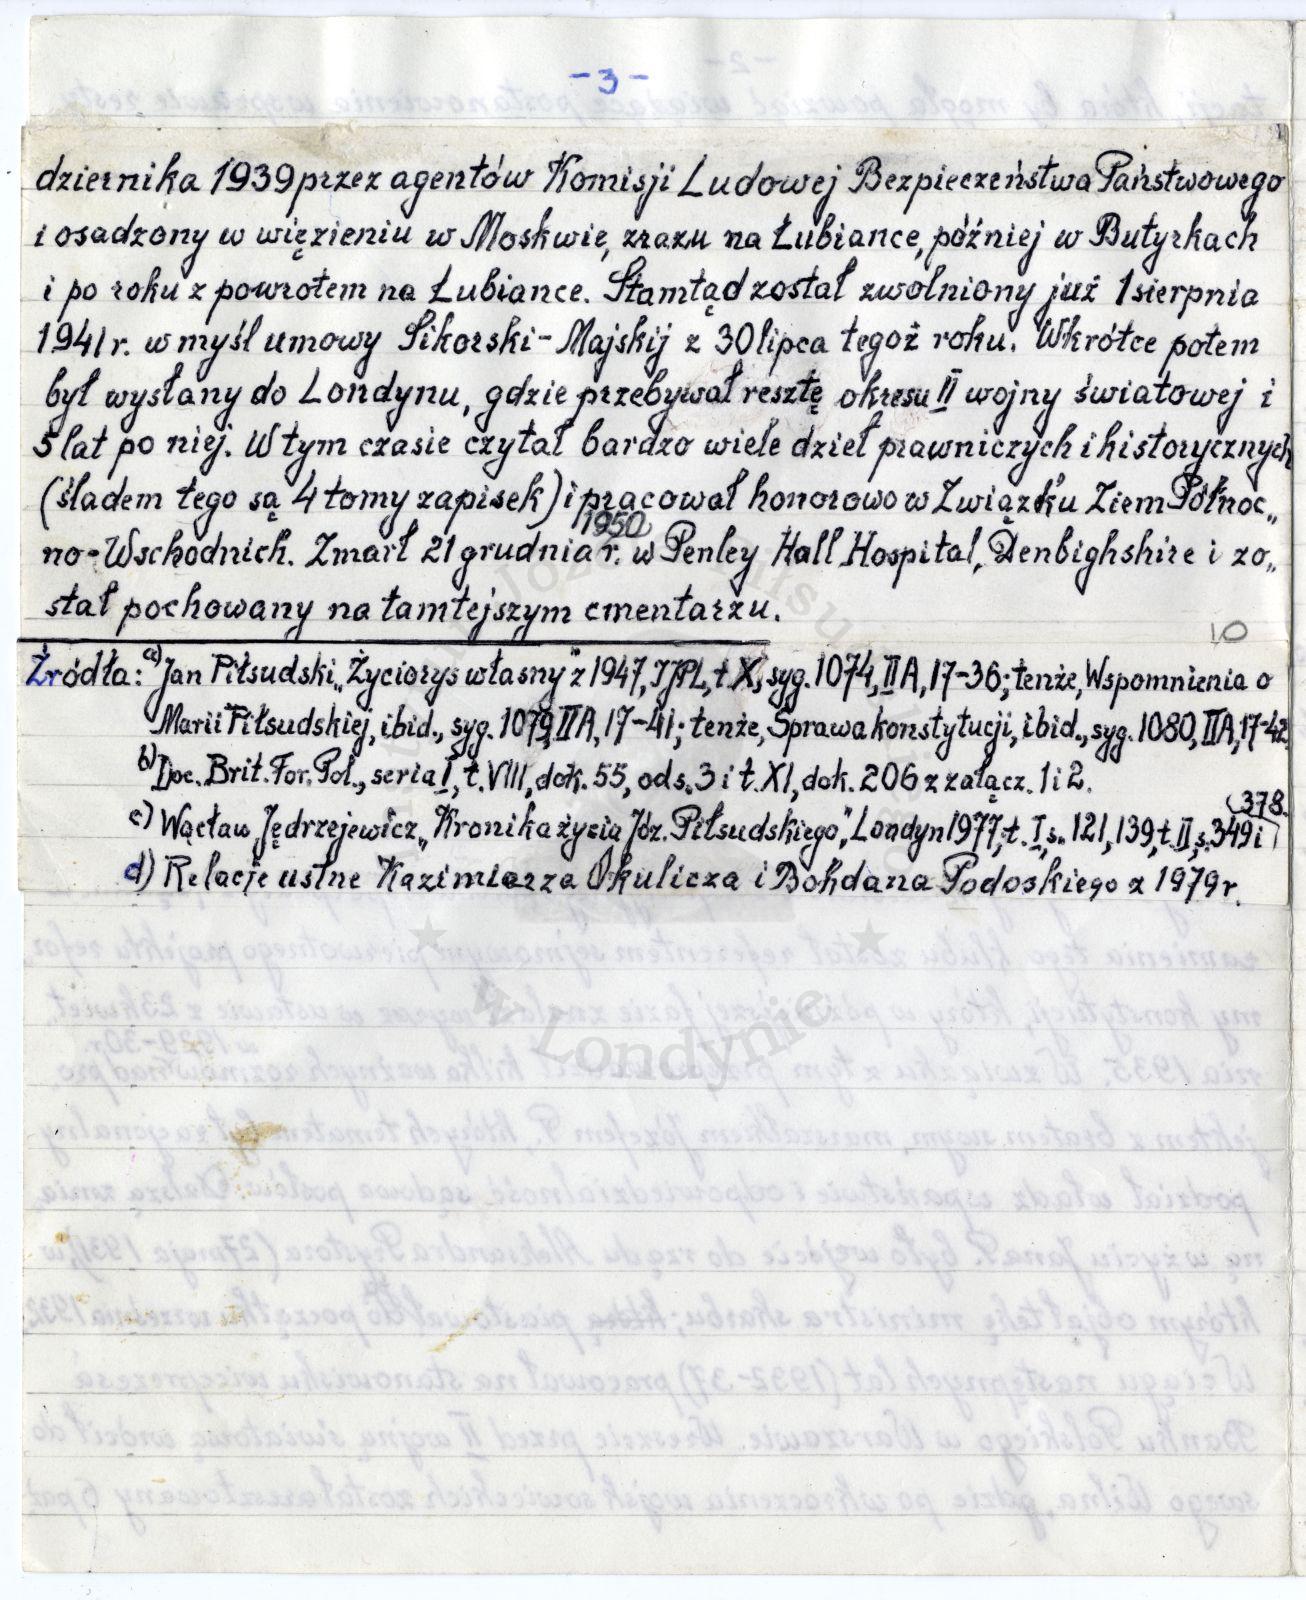 -3-
dziernika 1939 przez agentów Komisji Ludowej Bezpieczeństwa Państwowego
i osadzony w więzieniu w Moskwie, zrazu na Łubiance, później w Butyrkach
i po roku z powrotem na Łubiance. Stamtąd został zwolniony już 1 sierpnia
1941 r. w myśl umowy Sikorski-Majskij z 30 lipca tegoż roku. Wkrótce potem
był wysłany do Londynu, gdzie przebywał resztę okresu II wojny światowej i
5 lat po niej. W tym czasie czytał bardzo wiele dzieł prawniczych i historycznych
(śladem tego są 4 tomy zapisek) i pracował honorowo w Związku Ziem Północ„
no-Wschodnich. Zmarł 21 grudnia 1950 r. w Penley Hall Hospital, Denbighshire i zo„
stał pochowany na tamtejszym cmentarzu.
10
Źródła: a) Jan Piłsudski „Życiorys własny" z 1947, IJPL, t. X, syg. 1074, II A, 17-36; tenże, Wspomnienia o
Marii Piłsudskiej, ibid., syg. 1079, II A, 17-41; tenże, Sprawa konstytucji, ibid., syg. 1080, II A, 17-42.
b) Doc. Brit. For. Pol., seria I, t. VIII, dok. 55, ods. 3 i t. XI, dok. 206 z załącz. 1 i 2.
c) Wacław Jędrzejewicz „Kronika życia Józ. Piłsudskiego", Londyn 1977, t. I, s. 121, 139, t. II, s. 349 i 378.
d) Relacje ustne Kazimierza Okulicza i Bohdana Podoskiego z 1979 r.
w Londynie